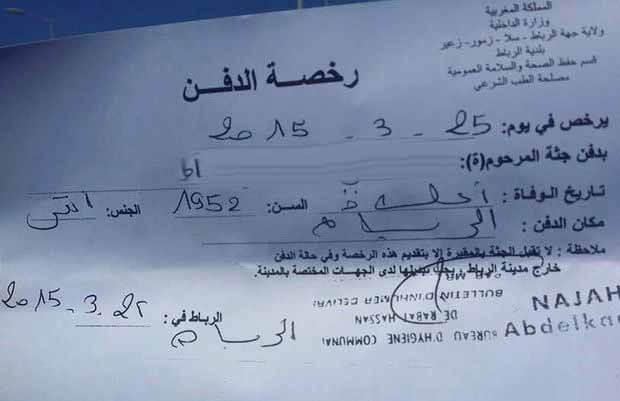 المملكة المغربية
وزارة الداخلية
ولاية جهة الرباط - سلا - زمور - زعير
بلدية الرباط
قسم حفظ الصحة والسلامة العمومية
مصلحة الطب الشرعي
رخصة الدفن
يرخص في يوم: 25 - 3 - 2015
بدفن جثة المرحوم(ة):
تاريخ الوفاة: السن: 1952 الجنس: أنثى
مكان الدفن:
ملاحظة : لا تقبل الجثة بالمقبرة إلا بتقديم هذه الرخصة وفي حالة الدفن
خارج مدينة الرباط، يجب تبديلها لدى الجهات المختصة بالمدينة.
الرباط في: 2015 - 3 -
NAJAH
Abdelka
BUREAU D'HYGIENE COMMUNA
DE RABAT HASSAN
BULLETIN D'INHUMER DELIVR